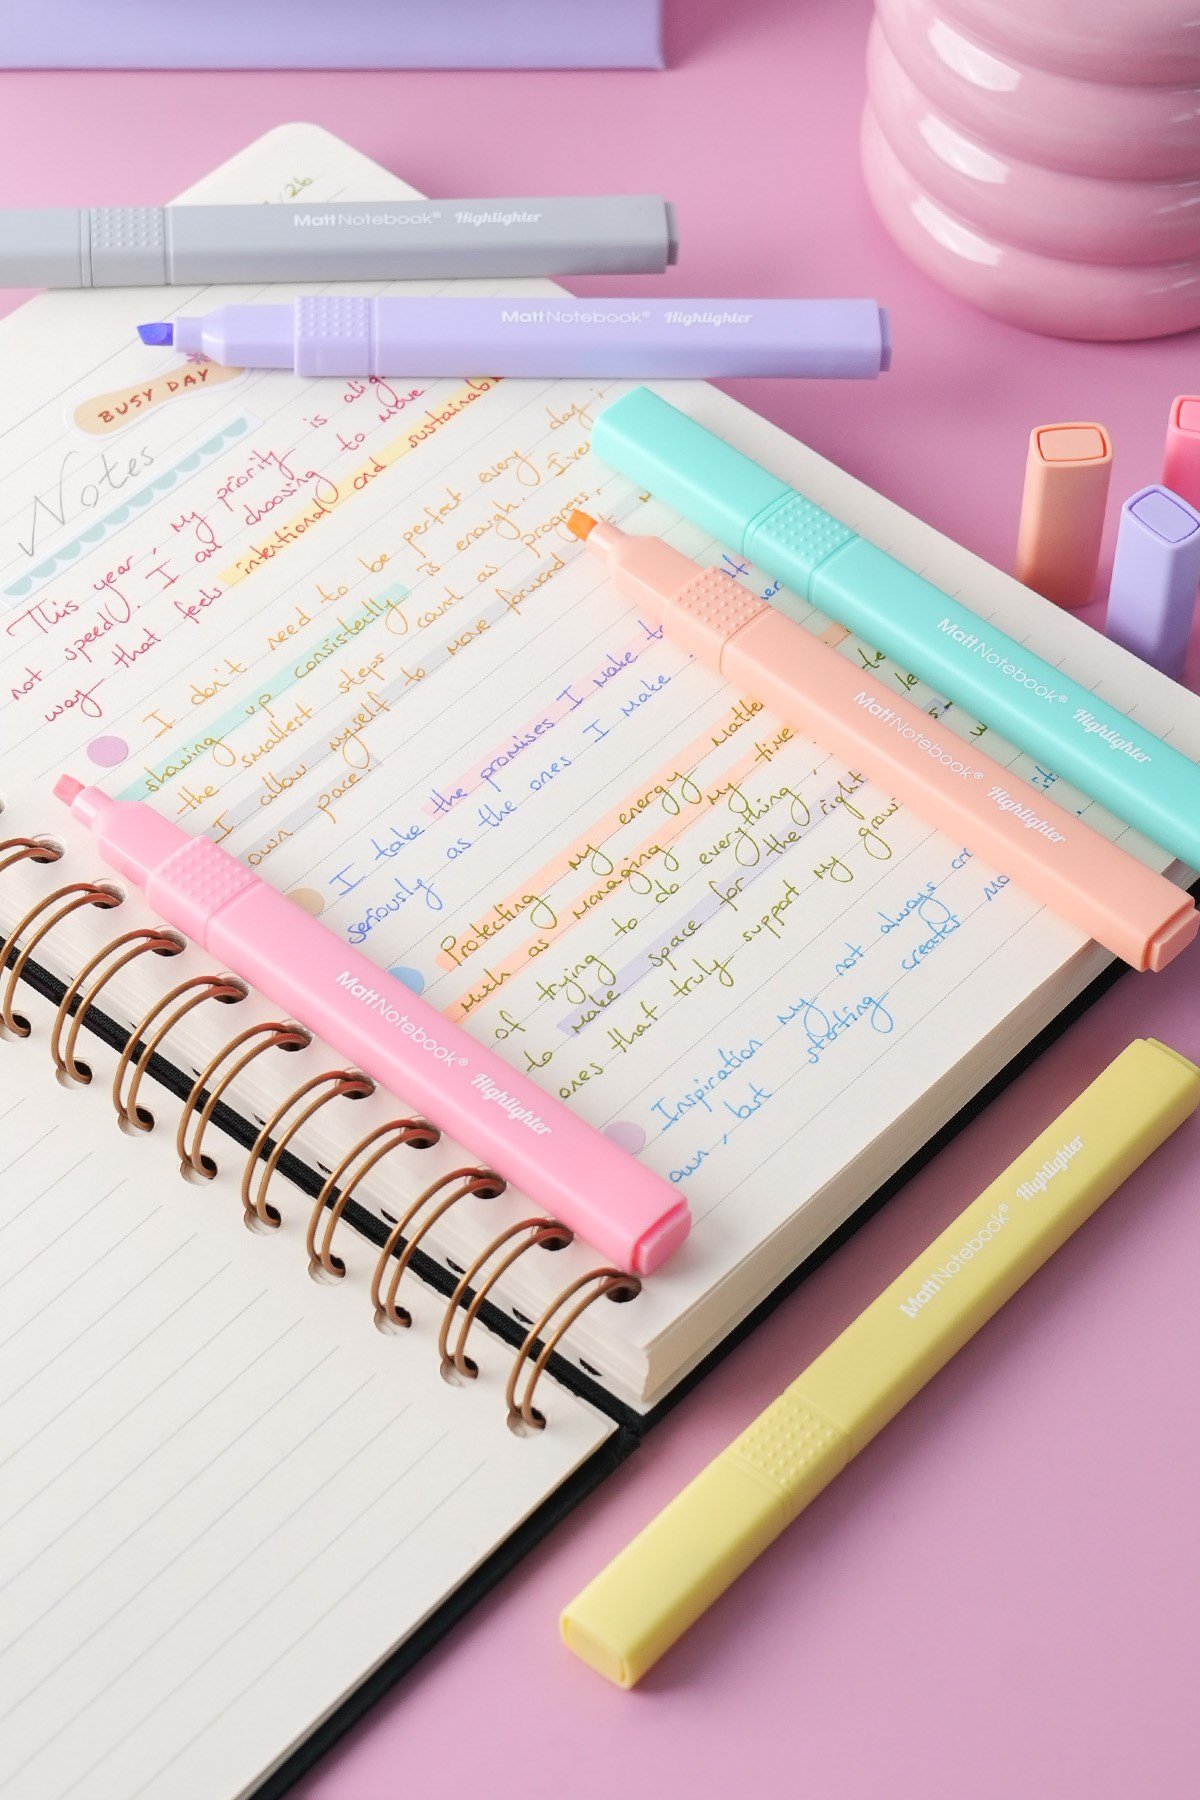 /26
MattNotebook® Highlighter
MattNotebook® Highlighter
BUSY DAY
Notes
This year, my priority is
not speed. I am choosing to move
way that feels intentional and sustainable
I don't need to be perfect every day;
showing up consistently is enough. I've
the smallest steps count as progress,
I allow myself to move forward
own pace!
I take the promises I make
seriously as the ones I make
Protecting my energy
much as managing my time
of trying to do everything,
to make space for the right
ones that truly support my grow
Inspiration my not always
own, but starting creates mo
MattNotebook® Highlighter
MattNotebook® Highlighter
MattNotebook® Highlighter
MattNotebook® Highlighter